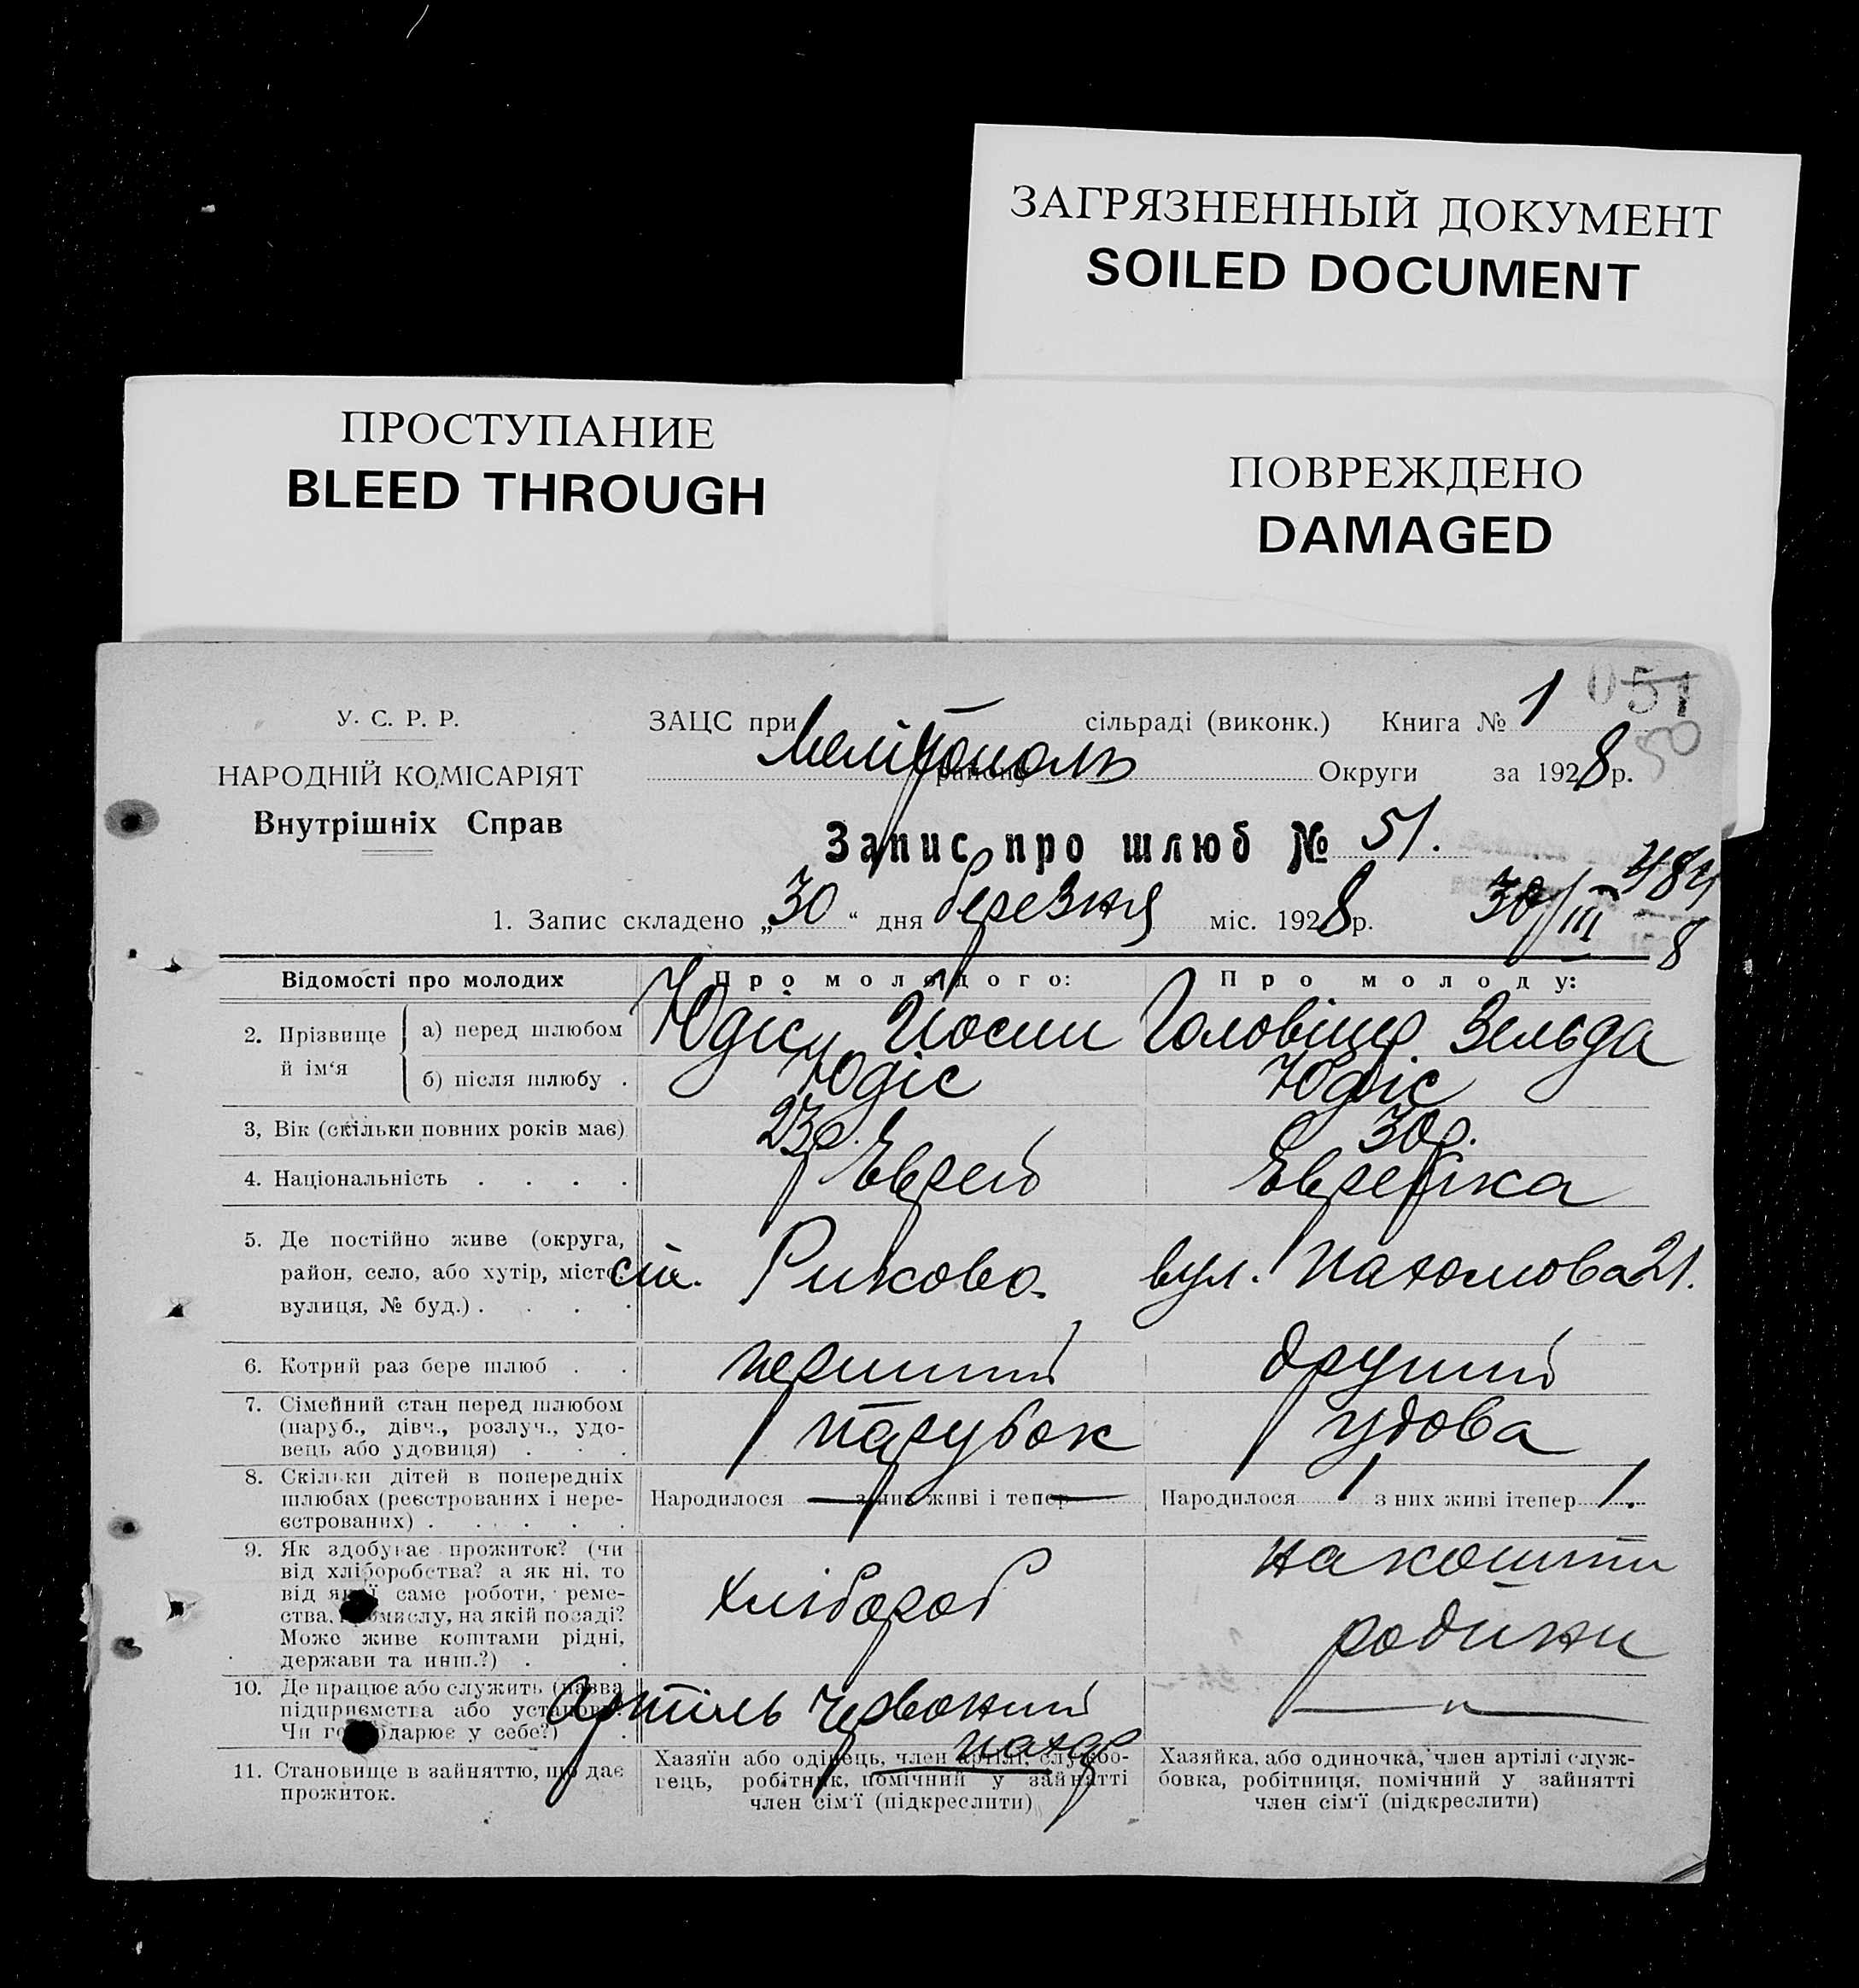 ЗАГРЯЗНЕННЫЙ ДОКУМЕНТ
SOILED DOCUMENT
ПРОСТУПАНИЕ
BLEED THROUGH
ПОВРЕЖДЕНО
DAMAGED
У. С. Р. Р.
НАРОДНІЙ КОМІСАРІЯТ
Внутрішніх Справ
051
50
ЗАЦС при сільраді (виконк.) Книга № 1
Мелітополь району Округи за 1928 р.
Запис про шлюб № 51.
484
1. Запис складено „30“ дня березня міс. 1928 р. 30/III 8
Відомості про молодих Про молодого: Про молоду:
2. Прізвище й ім‘я
а) перед шлюбом Юдіс Йосип Зельда
б) після шлюбу . Юдіс Юдіс
3, Вік (скільки повних років має) 23 р. 30 р.
4. Національність . . . . Еврей Еврейка
5. Де постійно живе (округа,
район, село, або хутір, місто
вулиця, № буд.) . . . . Риково. вул. Пахомова 21.
6. Котрий раз бере шлюб . . перший другий
7. Сімейний стан перед шлюбом
(паруб., дівч., розлуч., удо-
вець або удовиця) . . . парубок удова
8. Скільки дітей в попередніх
шлюбах (реєстрованих і нере-
єстрованих) . . . . . .
Народилося — з них живі і тепер —
Народилося 1 з них живі ітепер 1.
9. Як здобуває прожиток? (чи
від хліборобства? а як ні, то
від якої саме роботи, реме-
ства, промислу, на якій посаді?
Може живе коштами рідні,
держави та инш.?) . .
хлібороб
на кошти
родини
10. Де працює або служить (назва
підприємства або установи.
Чи господарює у себе?) .
Артіль Червоний
пахар
— „ —
11. Становище в зайняттю, що дає
прожиток.
Хазяїн або одінець, член артілі, службо-
вець, робітник, помічний у зайнятті
член сім‘ї (підкреслити)
Хазяйка, або одиночка, член артілі служ-
бовка, робітниця, помічний у зайнятті
член сім‘ї (підкреслити)